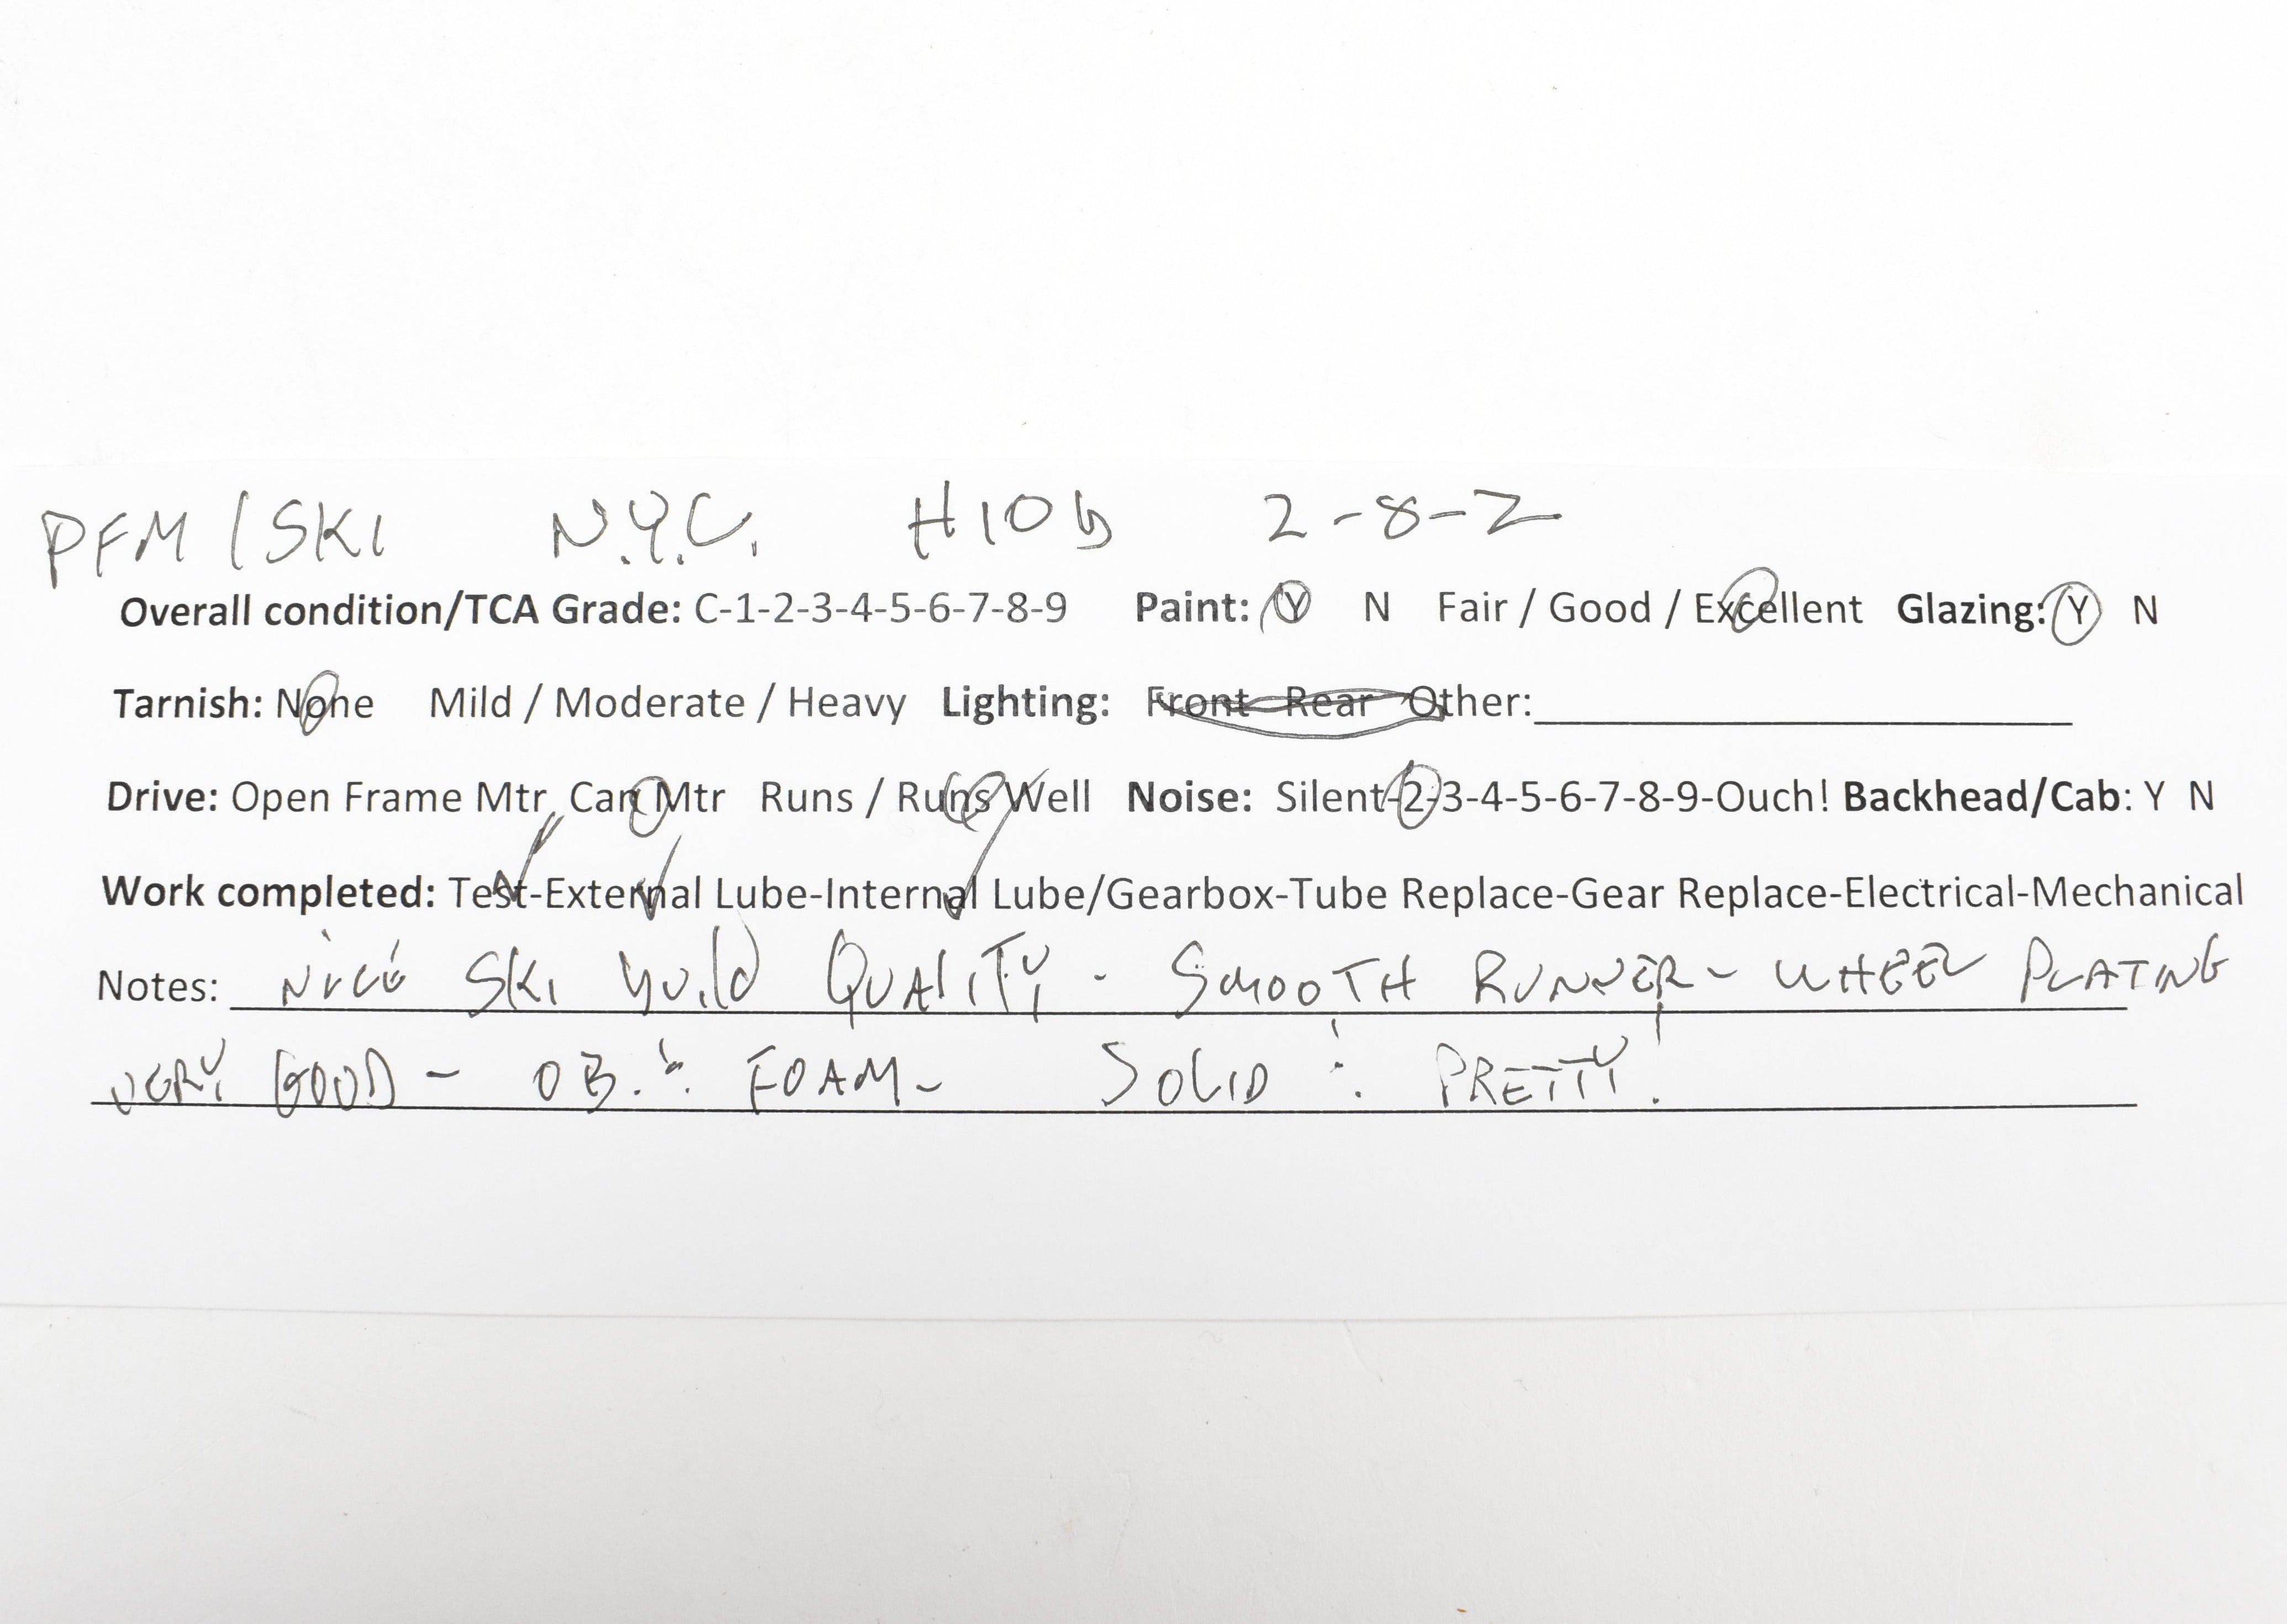 PFM / SKI N.Y.C. H10b 2-8-2
Overall condition/TCA Grade: C-1-2-3-4-5-6-7-8-9 Paint: Y N Fair / Good / Excellent Glazing: Y N
Tarnish: None Mild / Moderate / Heavy Lighting: Front Rear Other:
Drive: Open Frame Mtr Can Mtr Runs / Runs Well Noise: Silent-2-3-4-5-6-7-8-9-Ouch! Backhead/Cab: Y N
Work completed: Test-External Lube-Internal Lube/Gearbox-Tube Replace-Gear Replace-Electrical-Mechanical
Notes: NICE SKI build QUALITY - SMOOTH RUNNER - WHEEL PLATING
VERY GOOD - OB. & FOAM - SOLID & PRETTY!